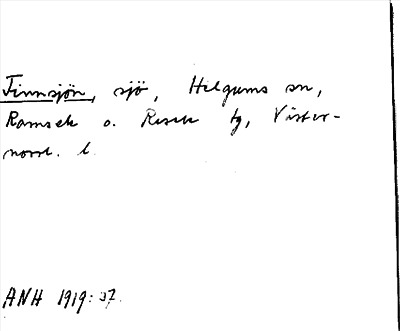 Finnsjön, sjö, Helgums sn,
Ramsele o. Resele tg, Väster-
norrl. l.
ANH 1919:37.